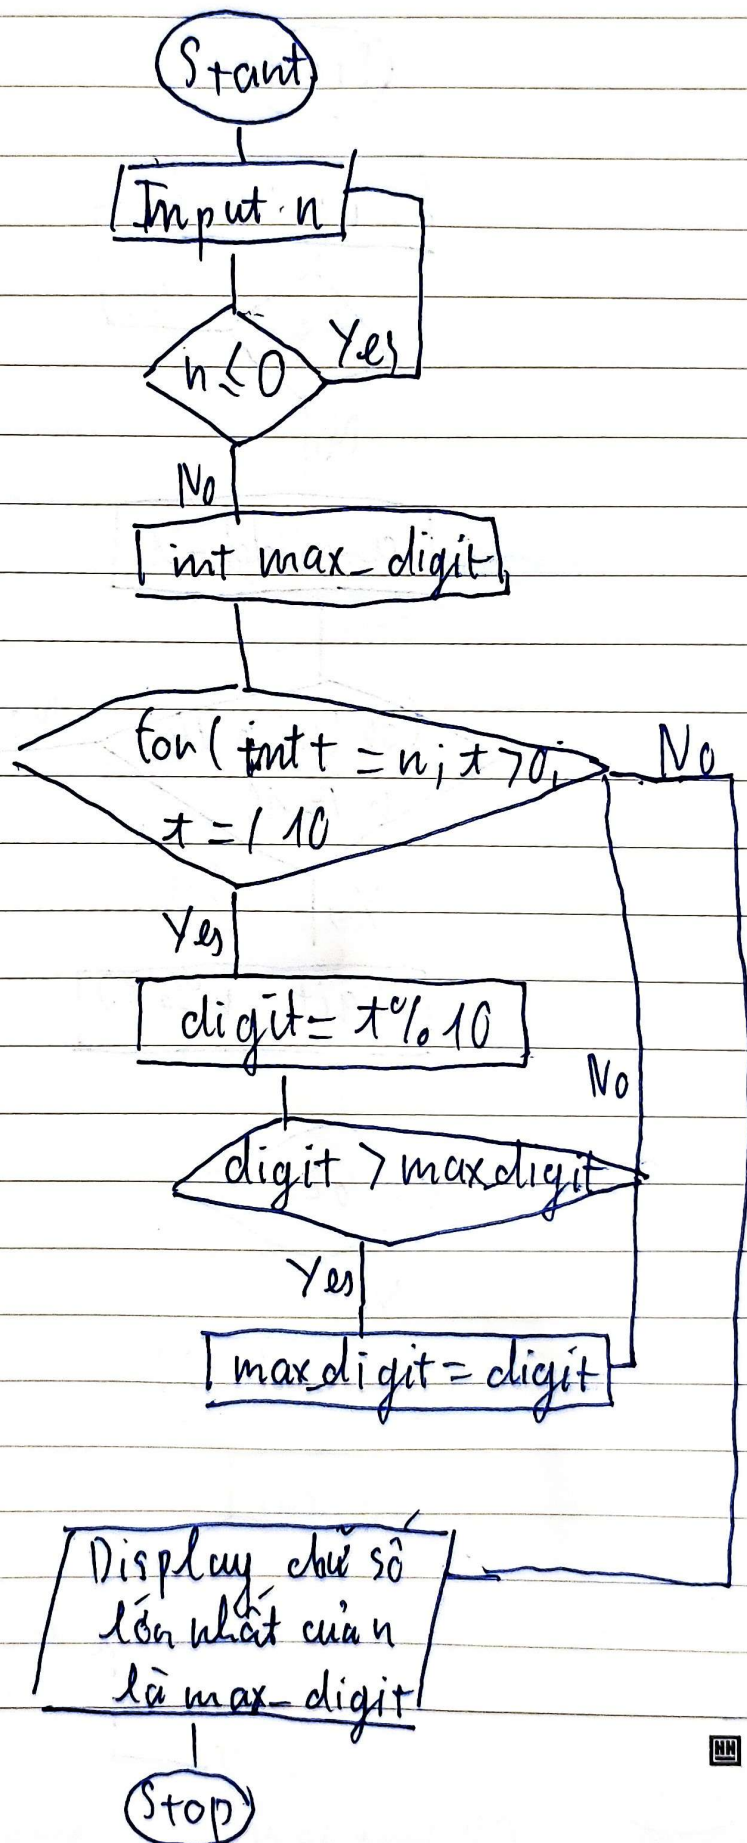 Start
Input n
n ≤ 0
Yes
No
int max_digit
for (int t = n; t > 0;
No
t =/ 10
Yes
digit = t % 10
No
digit > max_digit
Yes
max_digit = digit
Display chữ số
lớn nhất của n
là max_digit
Stop